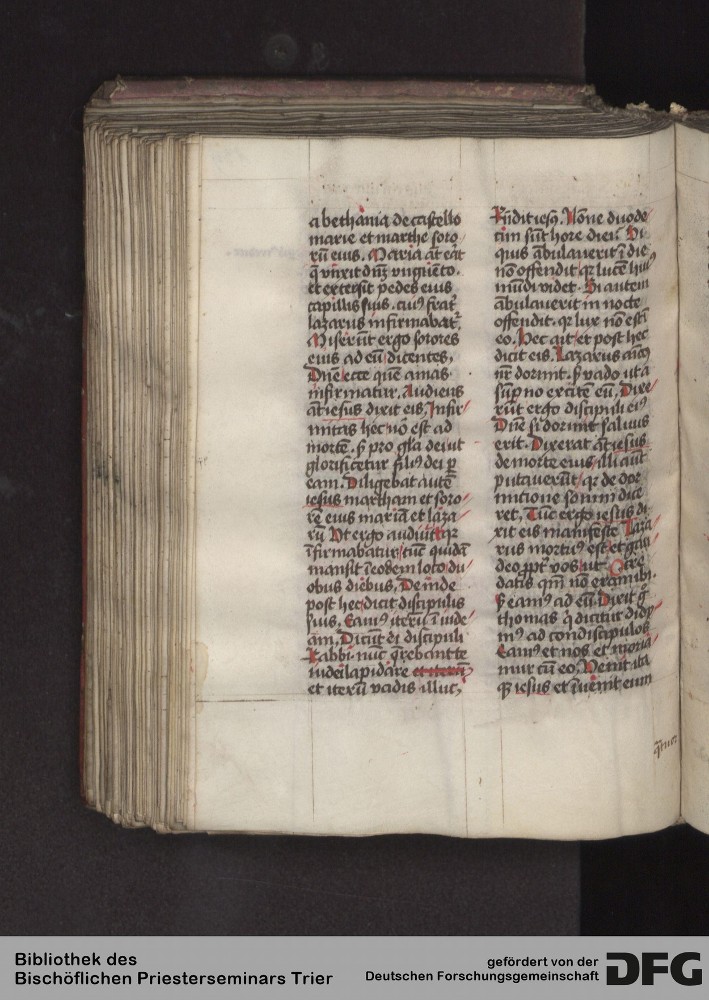 a bethania de castello
marie et marthe soro
rū eius. Maria āt erat
q̄ vnxit dnꝫ vnguēto.
et extersit pedes eius
capillis suis. cuiꝰ frat̄
lazarus infirmabat̄.
Miserūt ergo sorores
eius ad eū dicentes,
Dne ecce quē amas
infirmatur. Audiens
āt iesus dixit eis. Infir
mitas hec nō est ad
mortē. sꝫ pro gla dei ut
glorificetur filiꝰ dei ꝑ
eam. Diligebat autē
iesus martham et soro
rē eius mariā et laza
rū Vt ergo audiuit qꝛ
īfirmabatur, tūc quidā
mansit ī eodem loco du
obus diebus, Deinde
post hec dicit discipulis
suis. Eamꝰ iterū ī iude
am, Dicūt ei discipuli
Rabbi nūc q̄rebant te
iudei lapidare et iterū
et iterū vadis illuc,
Rn̄dit iesꝰ. Nōne duode
cim sūt hore diei. Si
quis ābulauerit ī die
nō offendit qꝛ lucē huiꝰ
mūdi videt. Si autem
ābulauerit in nocte
offendit. qꝛ lux nō est ī
eo. Hec ait et post hec
dicit eis. Lazarus amicꝰ
nr̄ dormit. sꝫ vado ut a
sūpno excitē eū, Dixe
rūt ergo discipuli eiꝰ
Dn̄e si dormit saluus
erit. Dixerat āt iesus
de morte eius, illi aūt
putauerūt, qꝛ de dor
mitione sompni dice
ret, Tūc ergo iesus di
xit eis manifeste Laza
rus mortuꝰ est et gau
deo ꝓpt̄ vos, ut Cre
datis qm̄ nō eram ibi.
Sꝫ eamꝰ ad eū. Dixit g°
thomas q̄ dicitur didy
mꝰ ad condiscipulos
Eamꝰ et nos et moria
mur cū eo. Venit ita
qꝫ iesus et īuenit eum
Bibliothek des
Bischöflichen Priesterseminars Trier
gefördert von der
Deutschen Forschungsgemeinschaft
DFG